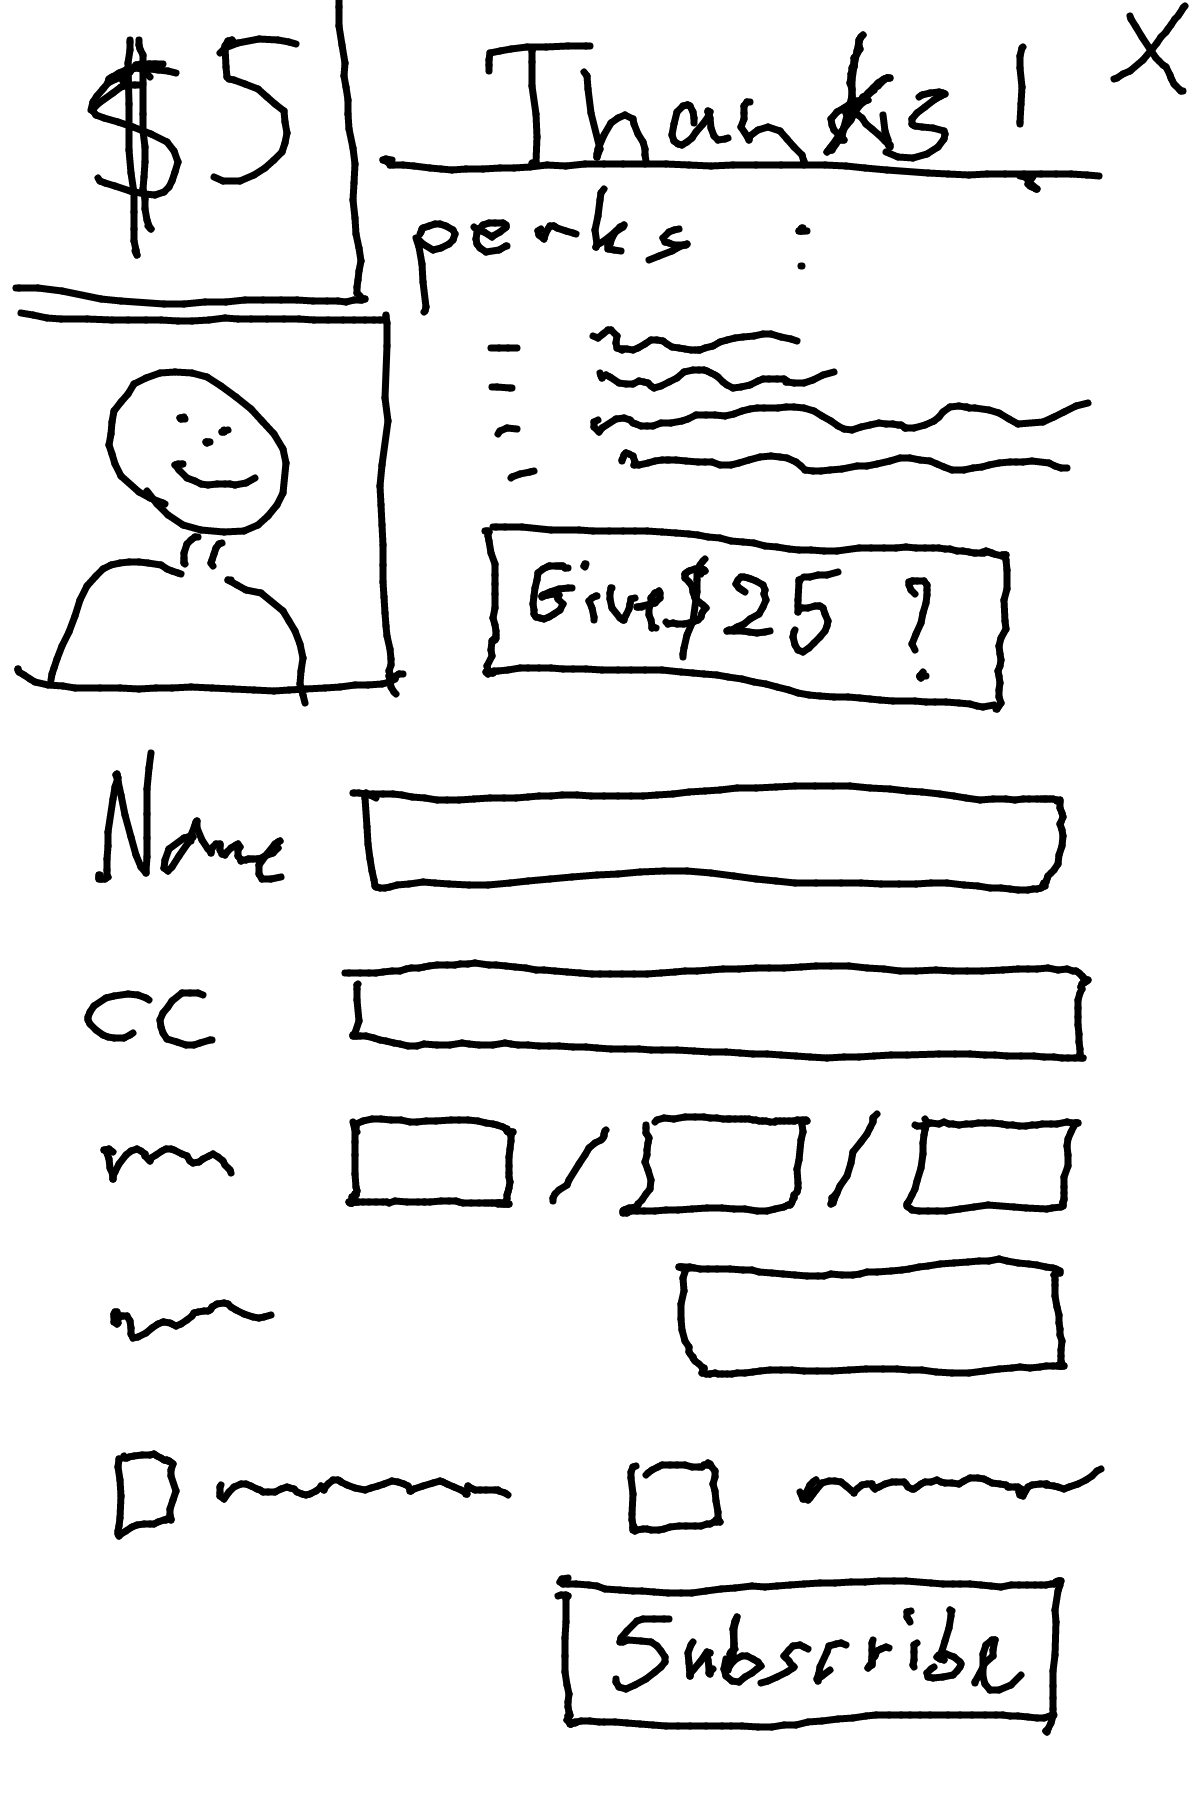 $5
Thanks!
X
perks :
Give $25 ?
Name
CC
Subscribe